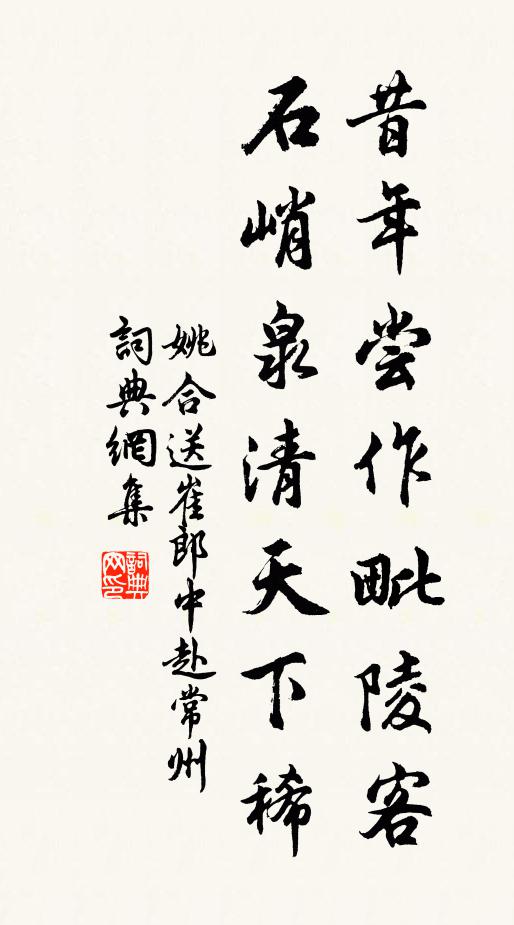 昔年尝作毗陵客
石峭泉清天下稀
姚合送崔郎中赴常州
詞典網集
詞典网印